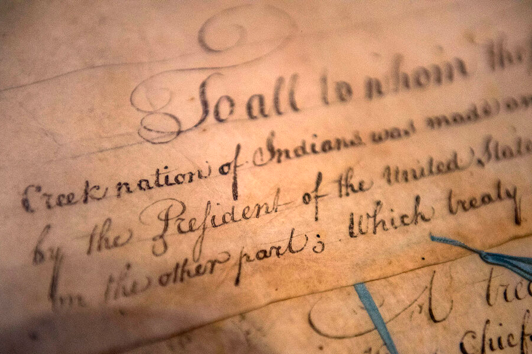 To all to whom
Creek nation of Indians was made
by the President of the United State
on the other part; Which treaty
A trea
Chief